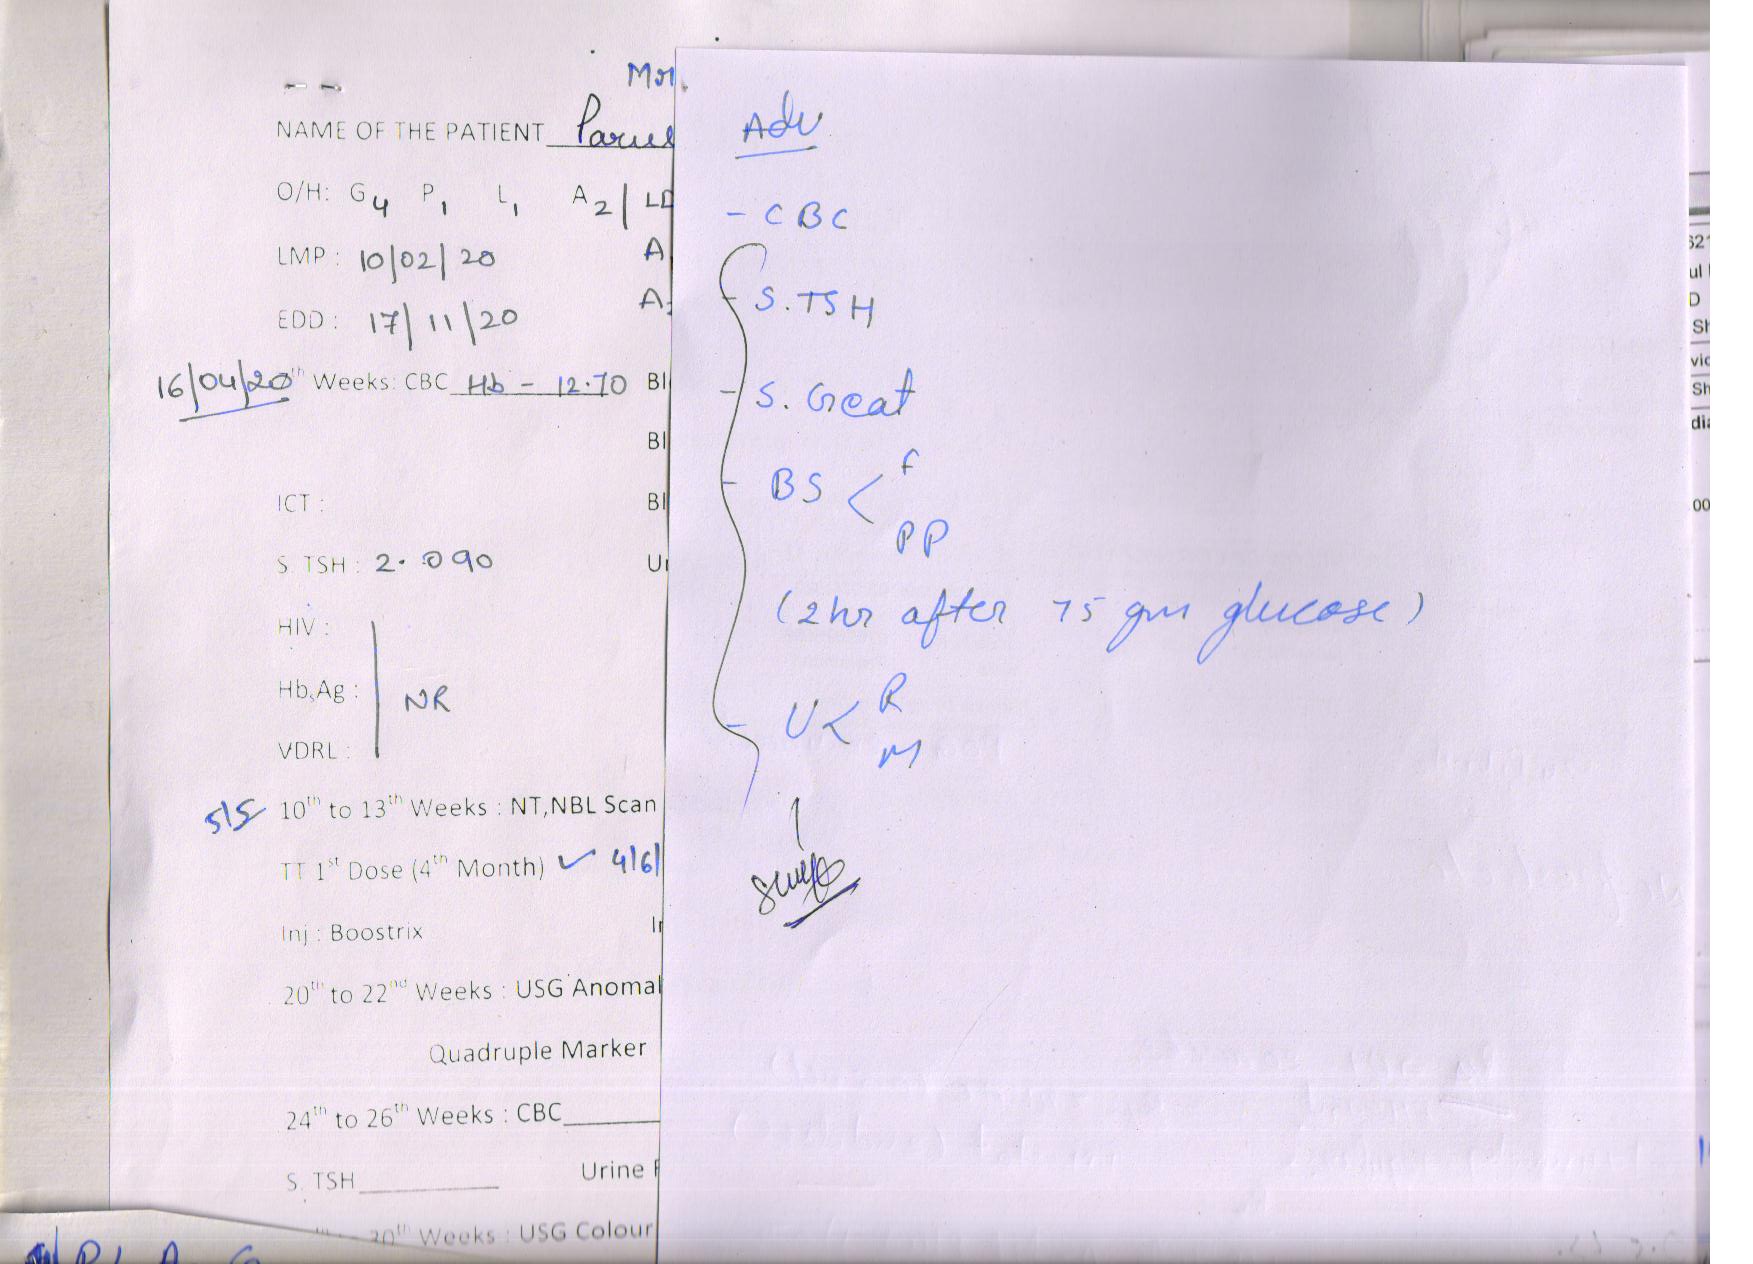 Mr
NAME OF THE PATIENT Parul
O/H: G4 P1 L1 A2 | LD
LMP : 10/02/20 A
EDD : 17/11/20 A
16/04/20 th Weeks: CBC Hb - 12.70 Bl
Bl
ICT : Bl
S. TSH : 2.090 Ur
HIV :
HbsAg : NR
VDRL :
5/5 10th to 13th Weeks : NT,NBL Scan
TT 1st Dose (4th Month) ✓ 4/6/
Inj : Boostrix In
20th to 22nd Weeks : USG Anomal
Quadruple Marker
24th to 26th Weeks : CBC
S. TSH Urine
30th Weeks : USG Colour
Adv
- CBC
- S. TSH
- S. Creat
- BS < F
PP
(2 hr after 75 gm glucose)
- U < R
M
S21
ul
D
Sh
vic
Sh
dia
00